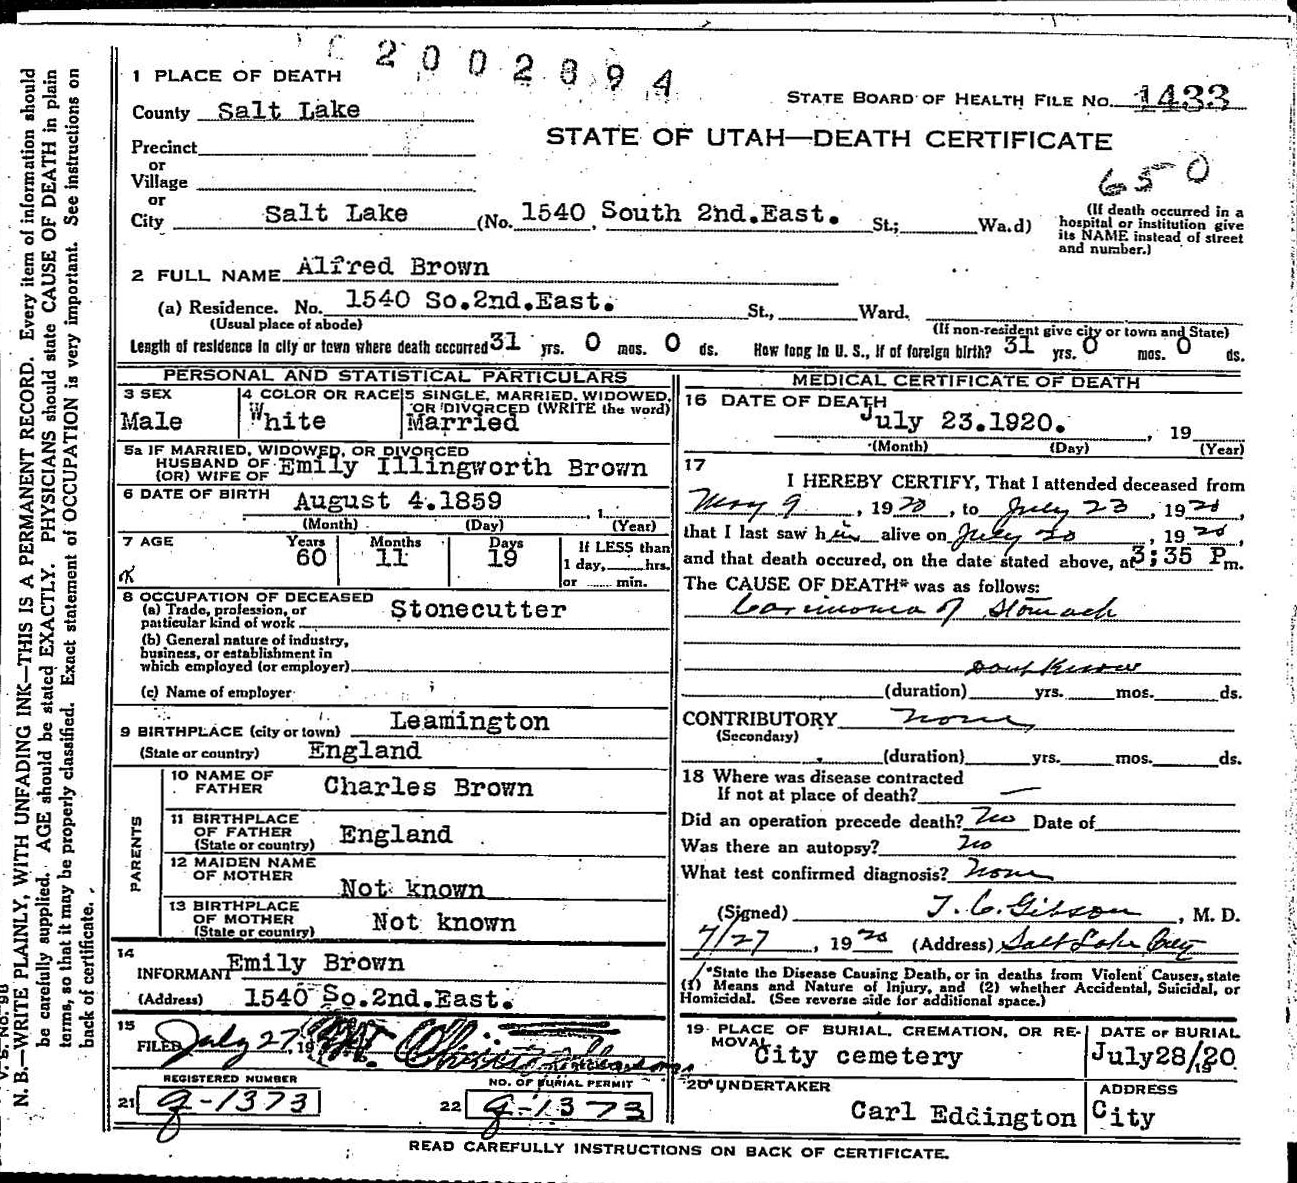 2002894
1 PLACE OF DEATH
STATE BOARD OF HEALTH FILE NO. 1433
County Salt Lake
STATE OF UTAH—DEATH CERTIFICATE
Precinct
or
Village
650
or
City Salt Lake (No. 1540 South 2nd.East. St.; Wa.d)
(If death occurred in a
hospital or institution give
its NAME instead of street
and number.)
2 FULL NAME Alfred Brown
(a) Residence. No. 1540 So.2nd.East. St., Ward.
(Usual place of abode) (If non-resident give city or town and State)
Length of residence in city or town where death occurred 31 yrs. 0 mos. 0 ds. How long in U. S., if of foreign birth? 31 yrs. 0 mos. 0 ds.
PERSONAL AND STATISTICAL PARTICULARS
3 SEX
Male
4 COLOR OR RACE
White
5 SINGLE, MARRIED, WIDOWED,
OR DIVORCED (WRITE the word)
Married
5a IF MARRIED, WIDOWED, OR DIVORCED
HUSBAND OF Emily Illingworth Brown
(OR) WIFE OF
6 DATE OF BIRTH August 4.1859
(Month) (Day) (Year)
7 AGE Years Months Days If LESS than
60 11 19 1 day, hrs.
or min.
8 OCCUPATION OF DECEASED
(a) Trade, profession, or
particular kind of work Stonecutter
(b) General nature of industry,
business, or establishment in
which employed (or employer)
(c) Name of employer
9 BIRTHPLACE (city or town) Leamington
(State or country) England
PARENTS
10 NAME OF
FATHER Charles Brown
11 BIRTHPLACE
OF FATHER
(State or country) England
12 MAIDEN NAME
OF MOTHER
Not known
13 BIRTHPLACE
OF MOTHER
(State or country) Not known
14
INFORMANT Emily Brown
(Address) 1540 So.2nd.East.
15
FILED July 27, 19
REGISTERED NUMBER NO. OF BURIAL PERMIT
21 g-1373 22 g-1373
MEDICAL CERTIFICATE OF DEATH
16 DATE OF DEATH
July 23.1920. , 19
(Month) (Day) (Year)
17
I HEREBY CERTIFY, That I attended deceased from
May 9, 1920, to July 23, 1920,
that I last saw him alive on July 20, 1920,
and that death occured, on the date stated above, at 3;35 P m.
The CAUSE OF DEATH* was as follows:
Carcinoma of Stomach
Dont Know
(duration) yrs. mos. ds.
CONTRIBUTORY none
(Secondary)
(duration) yrs. mos. ds.
18 Where was disease contracted
If not at place of death? —
Did an operation precede death? No Date of
Was there an autopsy? No
What test confirmed diagnosis? None
(Signed) T. C. Gibson, M. D.
7/27, 1920 (Address) Salt Lake City
*State the Disease Causing Death, or in deaths from Violent Causes, state
(1) Means and Nature of Injury, and (2) whether Accidental, Suicidal, or
Homicidal. (See reverse side for additional space.)
19 PLACE OF BURIAL, CREMATION, OR RE-
MOVAL
City cemetery
DATE OF BURIAL
July28/20
19
20 UNDERTAKER
Carl Eddington
ADDRESS
City
READ CAREFULLY INSTRUCTIONS ON BACK OF CERTIFICATE.
N. B.—WRITE PLAINLY, WITH UNFADING INK—THIS IS A PERMANENT RECORD. Every item of information should
be carefully supplied. AGE should be stated EXACTLY. PHYSICIANS should state CAUSE OF DEATH in plain
terms, so that it may be properly classified. Exact statement of OCCUPATION is very important. See instructions on
back of certificate.